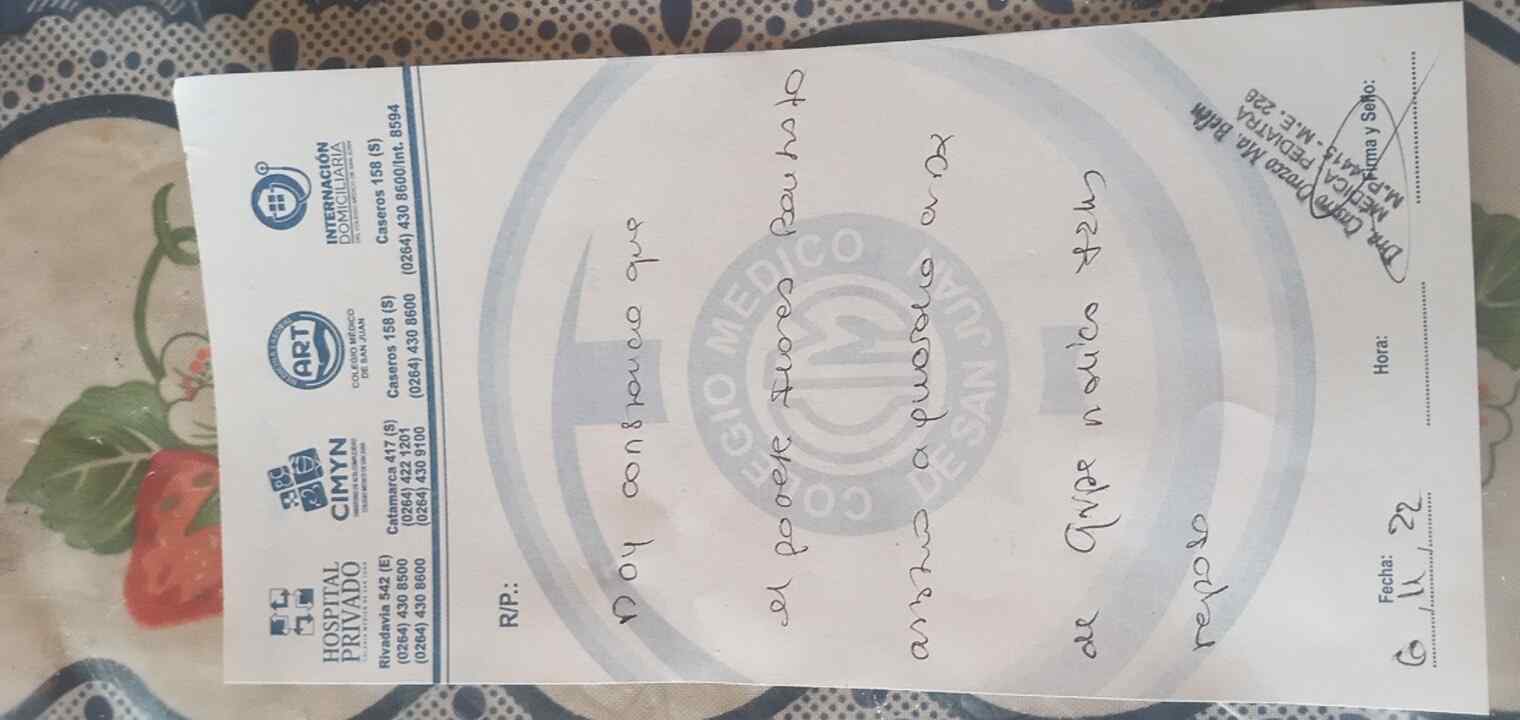 HOSPITAL
PRIVADO
COLEGIO MÉDICO DE SAN JUAN
Rivadavia 542 (E)
(0264) 430 8500
(0264) 430 8600
CIMYN
Catamarca 417 (S)
(0264) 422 1201
(0264) 430 9100
ART
COLEGIO MÉDICO
DE SAN JUAN
Caseros 158 (S)
(0264) 430 8600
INTERNACIÓN
DOMICILIARIA
DEL COLEGIO MÉDICO DE SAN JUAN
Caseros 158 (S)
(0264) 430 8600/Int. 8594
R/P.:
Doy constancia que
el padece Flores Bautista
asistio a guardia
de Gripe indico 72hs
reposo
COLEGIO MEDICO
DE SAN JUAN
CM
Fecha:
6 11 22
Hora:
Firma y Sello:
Dra. Castro Orozco Ma. Belén
MÉDICA PEDIATRA
M.P. 4415 - M.E. 228